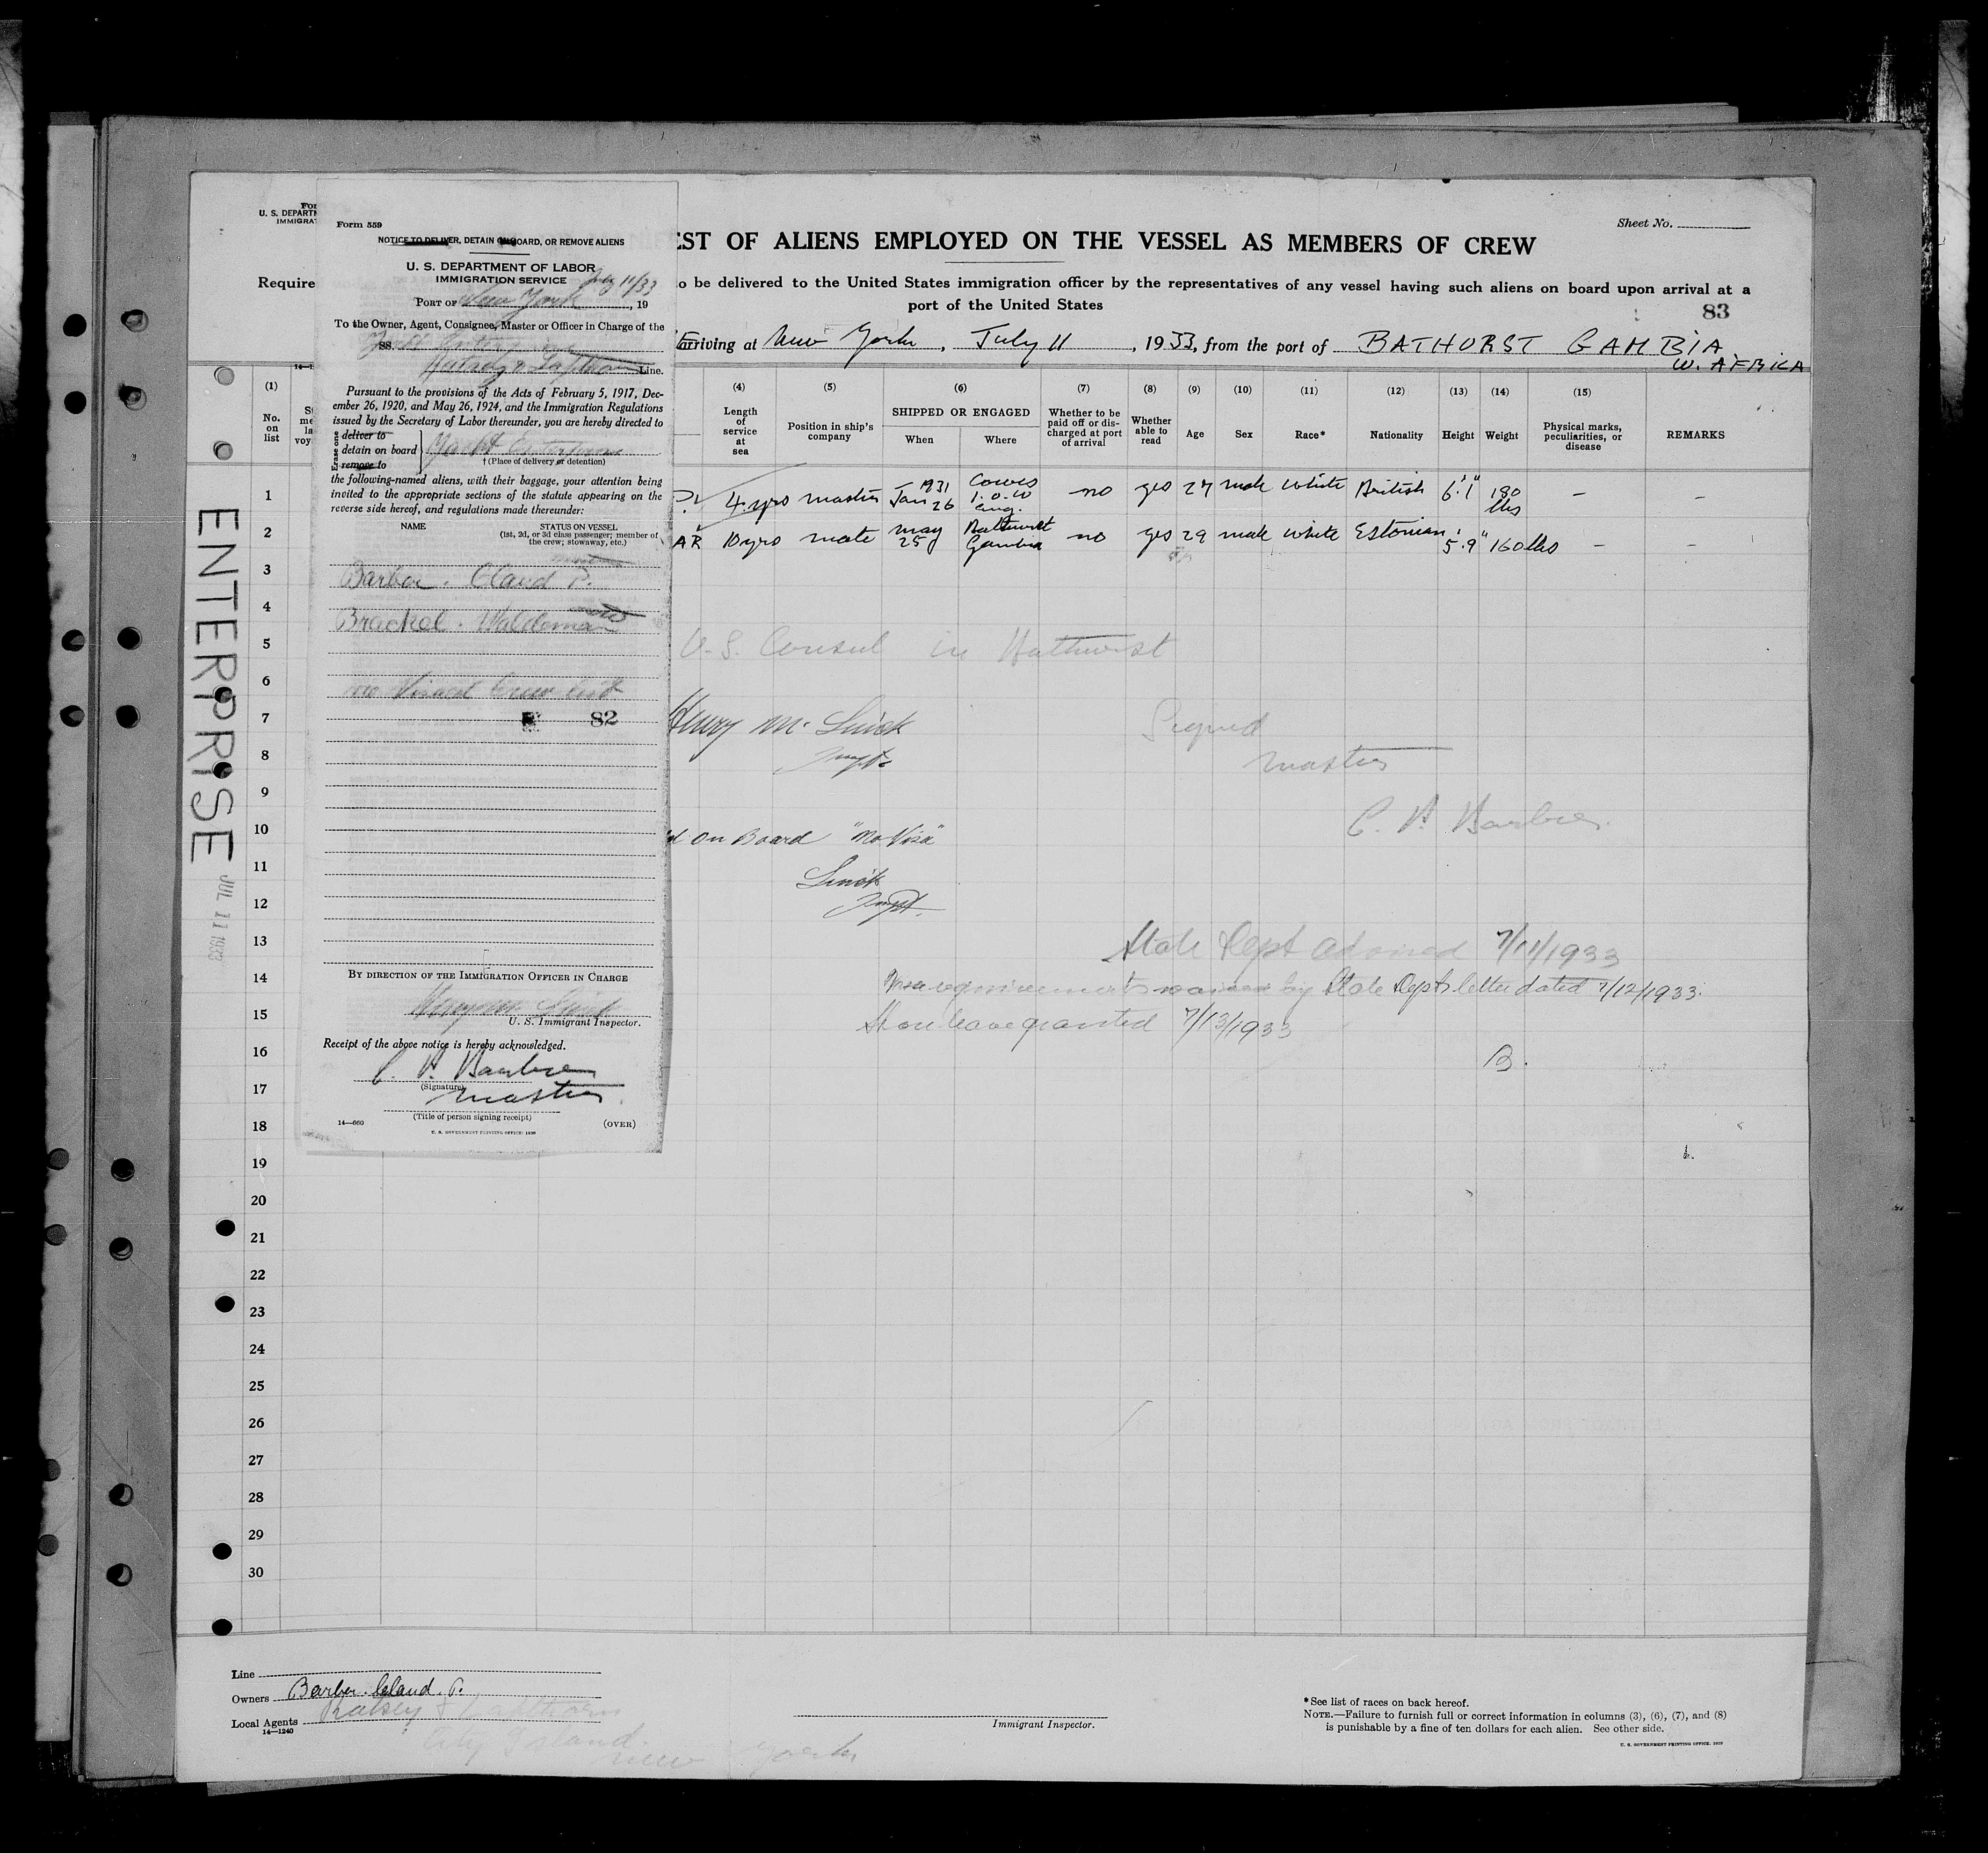 For
U. S. DEPARTM
IMMIGRAT
Require
Form 559
NOTICE TO DELIVER, DETAIN ON BOARD, OR REMOVE ALIENS
U. S. DEPARTMENT OF LABOR
IMMIGRATION SERVICE
July 11/33
PORT OF New York, 19
To the Owner, Agent, Consignee, Master or Officer in Charge of the
SS.
Line.
Pursuant to the provisions of the Acts of February 5, 1917, Dec-
ember 26, 1920, and May 26, 1924, and the Immigration Regulations
issued by the Secretary of Labor thereunder, you are hereby directed to
Erase one
deliver to
detain on board
remove to
Yacht Enterprise
† (Place of delivery or detention)
the following-named aliens, with their baggage, your attention being
invited to the appropriate sections of the statute appearing on the
reverse side hereof, and regulations made thereunder:
NAME
STATUS ON VESSEL
(1st, 2d, or 3d class passenger; member of
the crew; stowaway, etc.)
Barber. Claud P.
Brackel. Waldemar
no Visaed Crew list
82
BY DIRECTION OF THE IMMIGRATION OFFICER IN CHARGE
U. S. Immigrant Inspector.
Receipt of the above notice is hereby acknowledged.
C. P. Barber
(Signature)
master
(Title of person signing receipt)
14—660
(OVER)
U. S. GOVERNMENT PRINTING OFFICE: 1930
Sheet No.
EST OF ALIENS EMPLOYED ON THE VESSEL AS MEMBERS OF CREW
o be delivered to the United States immigration officer by the representatives of any vessel having such aliens on board upon arrival at a
port of the United States
83
arriving at New York, July 11, 1933, from the port of BATHURST GAMBIA
W. AFRICA
(1)
No.
on
list
(4)
Length
of
service
at
sea
(5)
Position in ship's
company
(6)
SHIPPED OR ENGAGED
When
Where
(7)
Whether to be
paid off or dis-
charged at port
of arrival
(8)
Whether
able to
read
(9)
Age
(10)
Sex
(11)
Race*
(12)
Nationality
(13)
Height
(14)
Weight
(15)
Physical marks,
peculiarities, or
disease
REMARKS
1 4 yrs master 1931 Jan 26 Cowes I.O.W Eng. no yes 27 male white British 6'.1" 180 lbs – –
2 AR 10 yrs mate may 25 Bathurst Gambia no yes 29 male white Estonian 5'.9" 160 lbs – –
3
4
5
U. S. Consul in Bathurst
6
7
Henry M.
Signed
8
master
9
C. P. Barber
10
d on Board "No Visa"
11
12
13
State Dept advised 7/11/1933
14
Visa requirements waived by State Dept's letter dated 7/12/1933.
15
Shore leave granted 7/13/1933
16
B.
17
18
19
20
21
22
23
24
25
26
27
28
29
30
ENTERPRISE
JUL 11 1933
Line
Owners Barber. Claud. P.
Local Agents Ratsey & Lapthorn
14—1240
City Island.
New York
Immigrant Inspector.
*See list of races on back hereof.
NOTE.—Failure to furnish full or correct information in columns (3), (6), (7), and (8)
is punishable by a fine of ten dollars for each alien. See other side.
U. S. GOVERNMENT PRINTING OFFICE: 1929